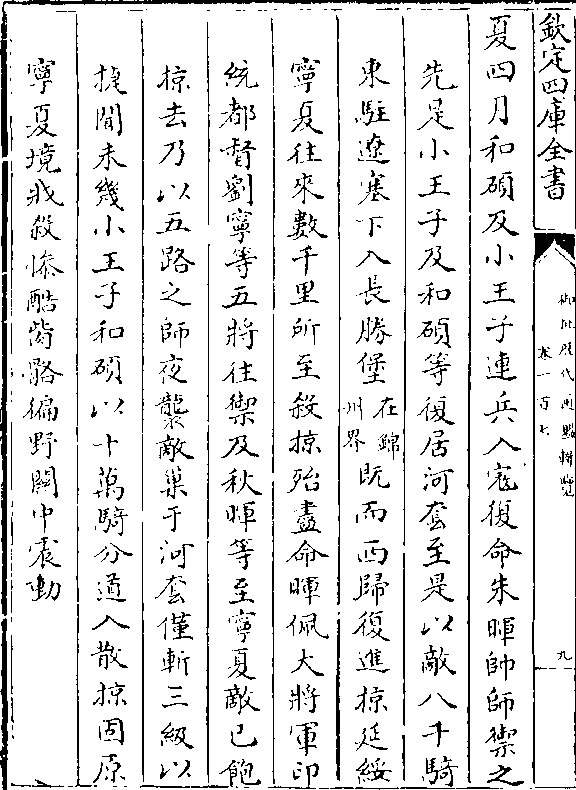 欽定四庫全書
御批歷代通鑑輯覽
卷一百七
九
夏四月和碩及小王子連兵入寇復命朱暉帥師禦之
先是小王子及和碩等復居河套至是以敵八千騎
東駐遼塞下入長勝堡在錦州界既而西歸復進掠延綏
寧夏往來數千里所至殺掠殆盡命暉佩大將軍印
統都督劉寧等五將往禦及秋暉等至寧夏敵已飽
掠去乃以五路之師夜襲敵巢于河套僅斬三級以
捷聞未幾小王子和碩以十萬騎分道入散掠固原
寧夏境戕殺慘酷胔骼徧野關中震動